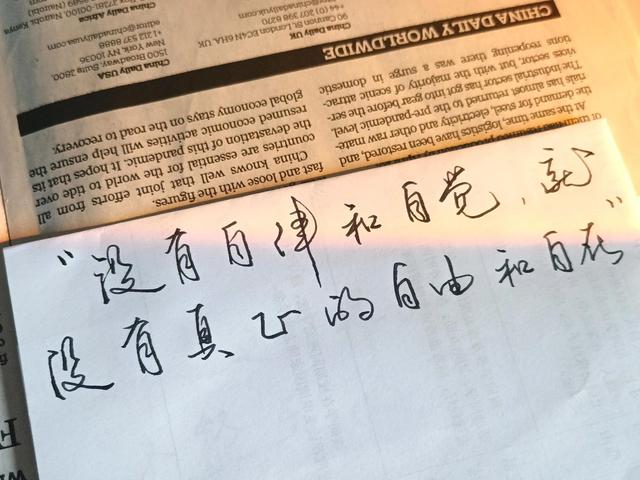 “没有自律和自觉，就
没有真正的自由和自在”
At the same time, logistics have been restored, and
the demand for steel, electricity and other raw mate-
rials has almost returned to the pre-pandemic level.
The industrial sector has got into gear before the ser-
vices sector, but with the majority of scenic attrac-
tions reopening there was a surge in domestic
fast and loose with the figures.
China knows well that joint efforts from all
countries are essential for the world to tide over
the devastation of this pandemic. It hopes that its
resumed economic activities will help the ensure
global economy stays on the road to recovery.
CHINA DAILY WORLDWIDE
China Daily UK
90 Cannon St, London EC4N 6HA, UK
+44 (0) 207 398 8270
China Daily USA
1500 Broadway, Suite 2800,
New York, NY 10036
+1 212 537 8888
editor@chinadailyusa.com
China Daily Africa